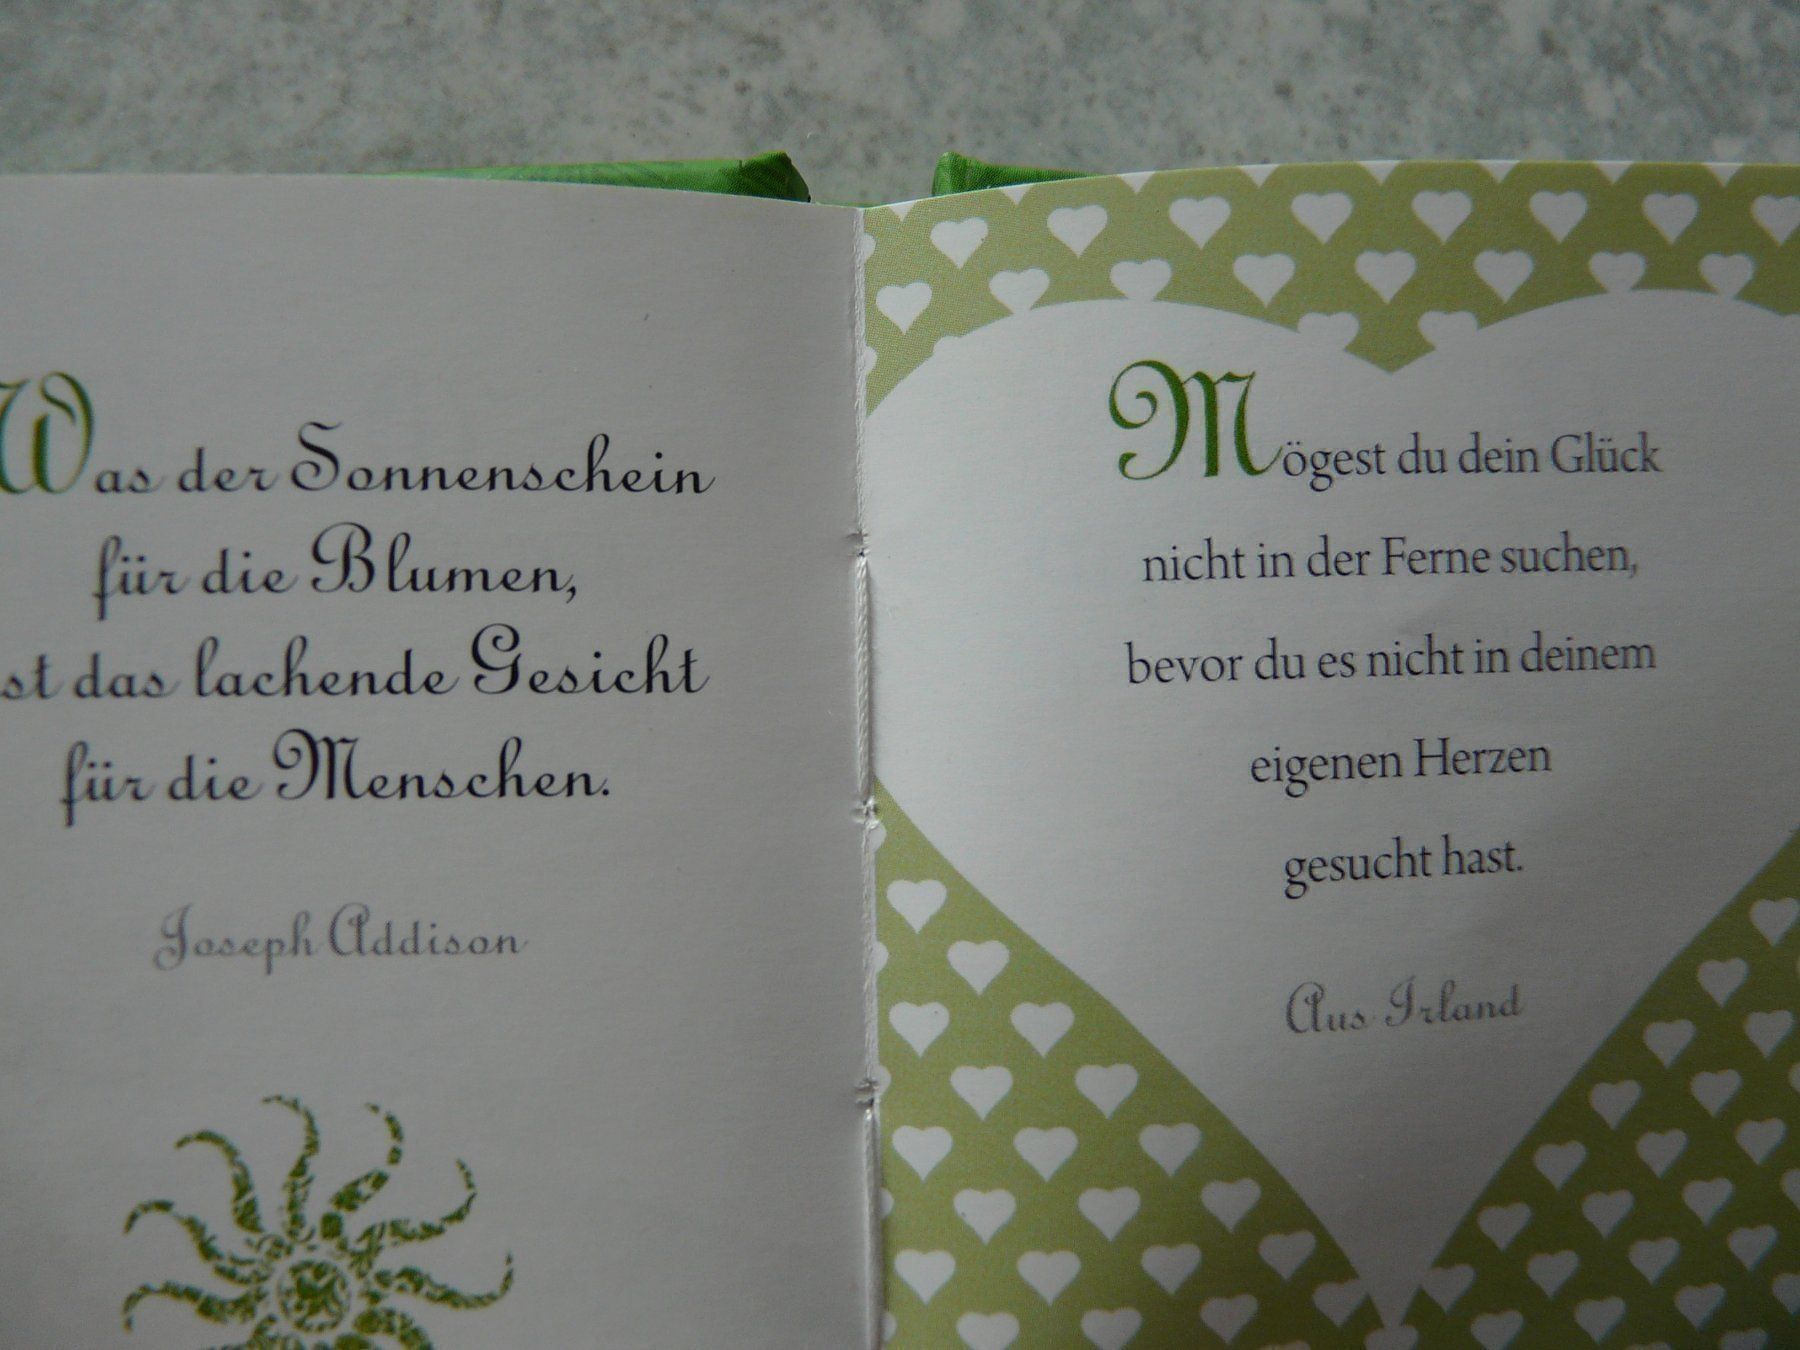 Was der Sonnenschein
für die Blumen,
st das lachende Gesicht
für die Menschen.
Joseph Addison
Mögest du dein Glück
nicht in der Ferne suchen,
bevor du es nicht in deinem
eigenen Herzen
gesucht hast.
Aus Irland